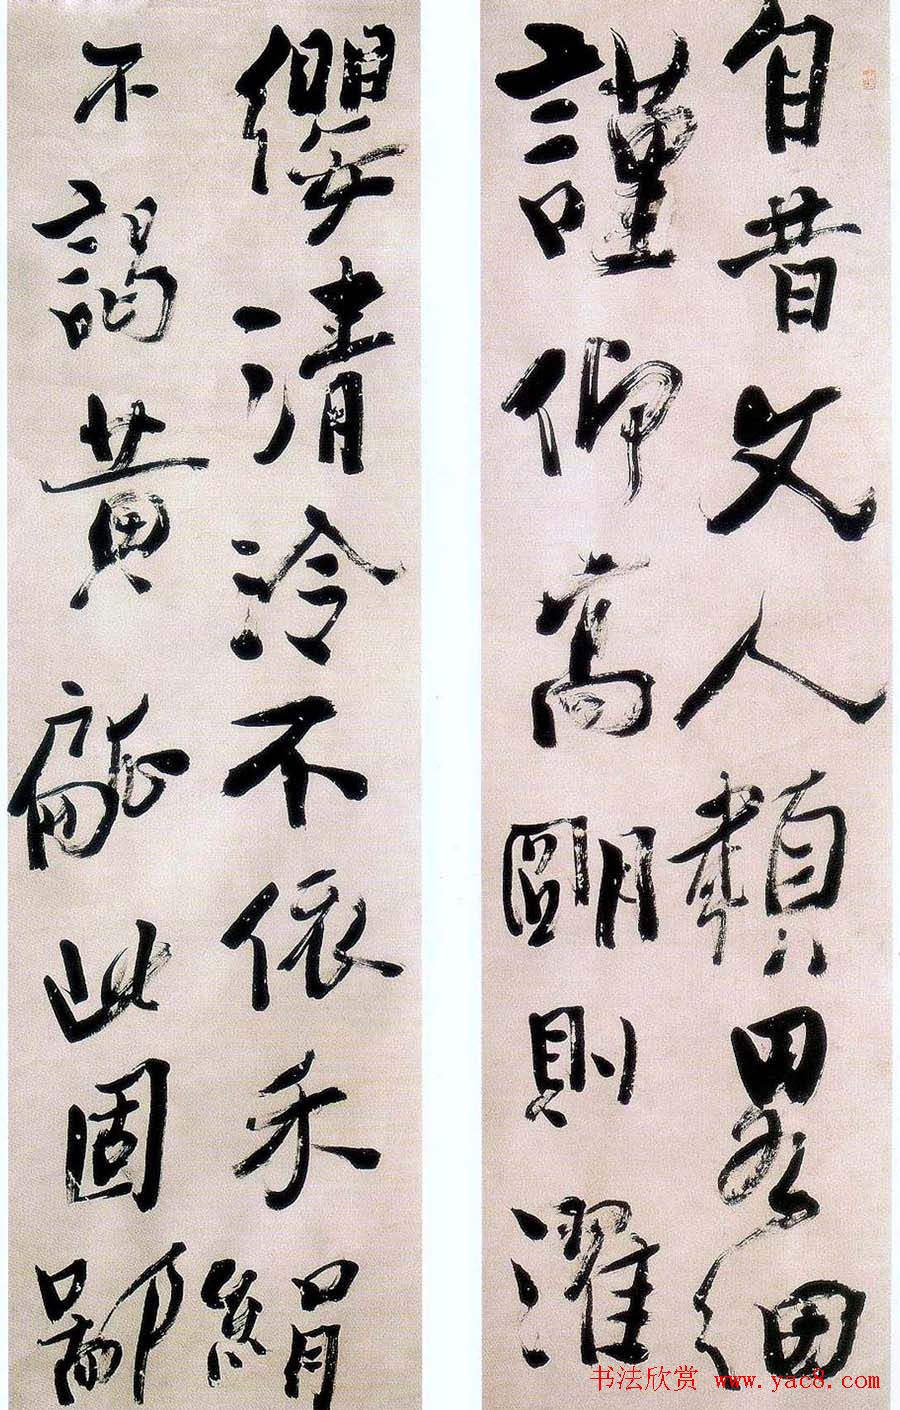 自昔文人類畧細
謹仰高則濯
纓清泠不依禾絹
不謁黃此固鄙
书法欣赏 www.yac8.com